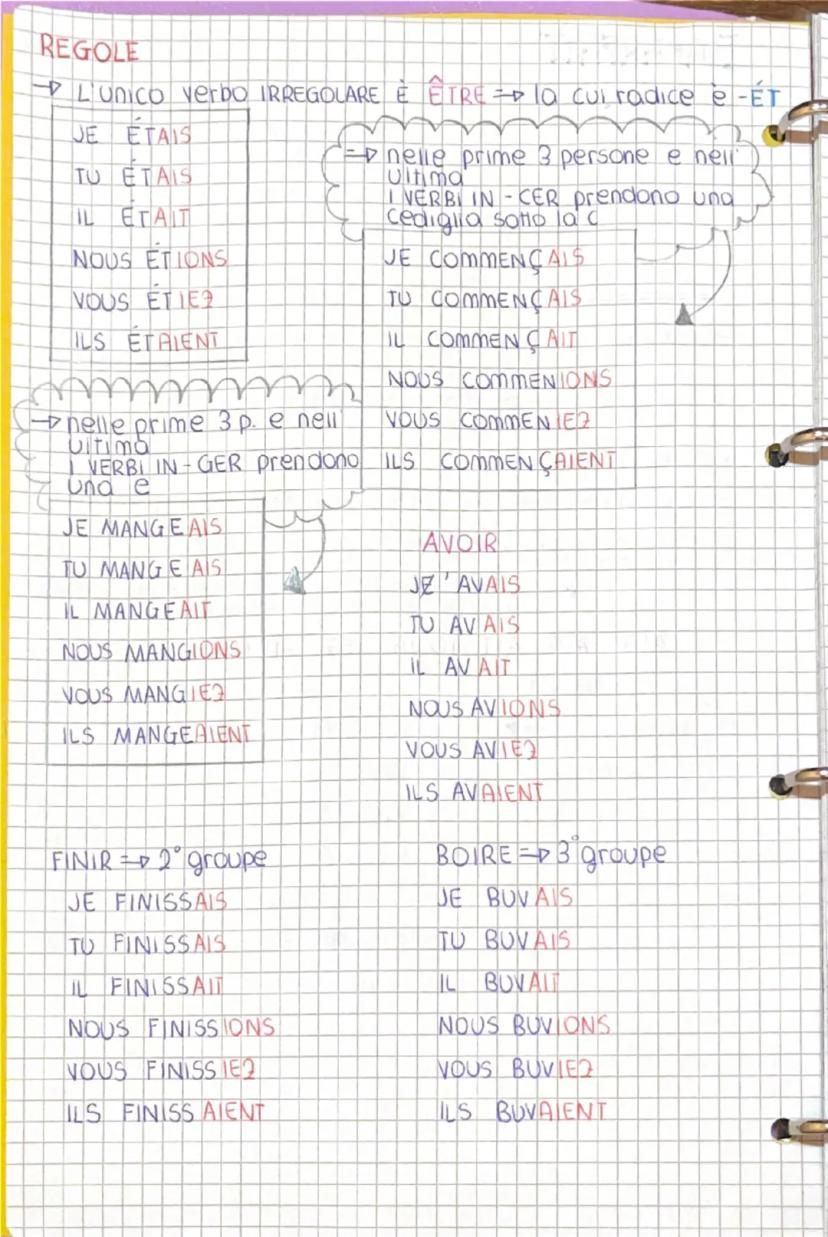 REGOLE
→ L'UNICO verbo IRREGOLARE È ÊTRE ⇒ la cui radice è -ÉT
JE ÉTAIS
TU ÉTAIS
IL ÉTAIT
NOUS ÉTIONS
VOUS ÉTIEZ
ILS ÉTAIENT
⇒ nelle prime 3 persone e nell'
ultima
I VERBI IN -CER prendono una
cediglia sotto la c
JE COMMENÇAIS
TU COMMENÇAIS
IL COMMENÇAIT
NOUS COMMENIONS
VOUS COMMENIEZ
ILS COMMENÇAIENT
→ nelle prime 3 p. e nell'
ultima
I VERBI IN -GER prendono
una e
JE MANGEAIS
TU MANGEAIS
IL MANGEAIT
NOUS MANGIONS
VOUS MANGIEZ
ILS MANGEAIENT
AVOIR
J'AVAIS
TU AVAIS
IL AVAIT
NOUS AVIONS
VOUS AVIEZ
ILS AVAIENT
FINIR ⇒ 2° groupe
JE FINISSAIS
TU FINISSAIS
IL FINISSAIT
NOUS FINISSIONS
VOUS FINISSIEZ
ILS FINISSAIENT
BOIRE ⇒ 3° groupe
JE BUVAIS
TU BUVAIS
IL BUVAIT
NOUS BUVIONS
VOUS BUVIEZ
ILS BUVAIENT